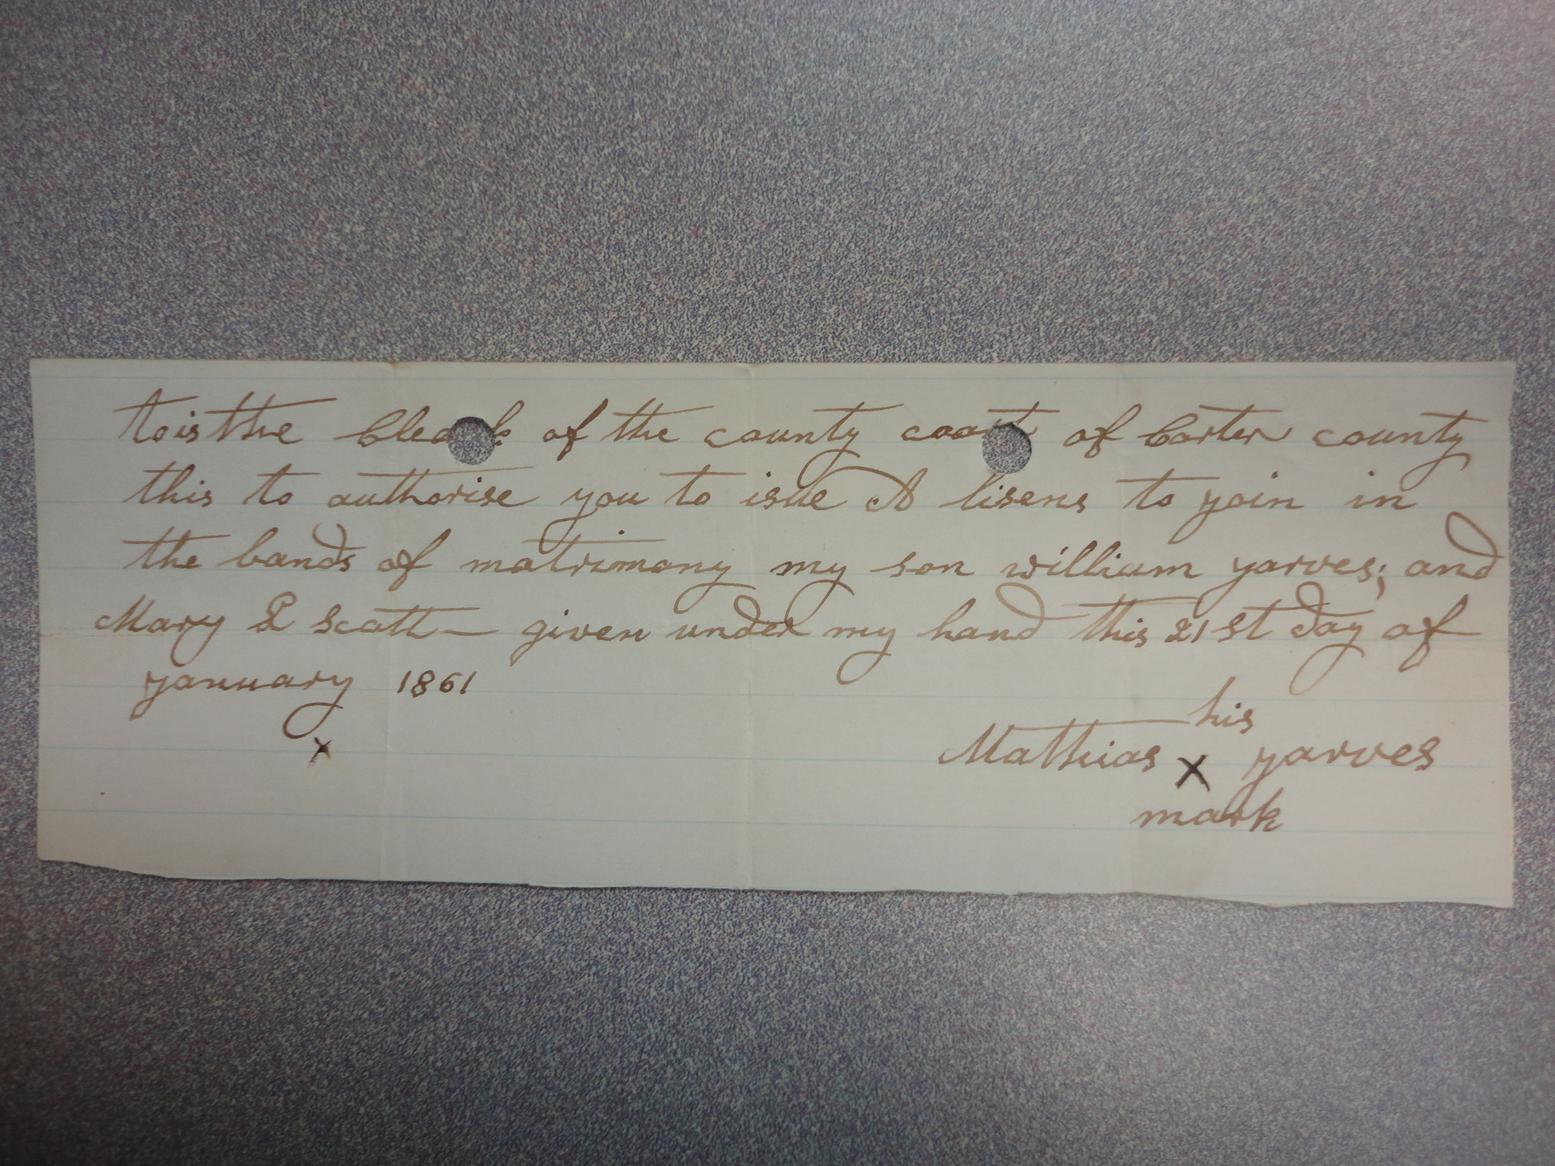 tois the Clea k of the county coat of Carter county
this to authorise you to isue A lisens to yoin in
the bands of matrimony my son william yarves; and
Mary E scott — given under my hand this 21st day of
yanuary 1861
x
his
Mathias X yarves
mark